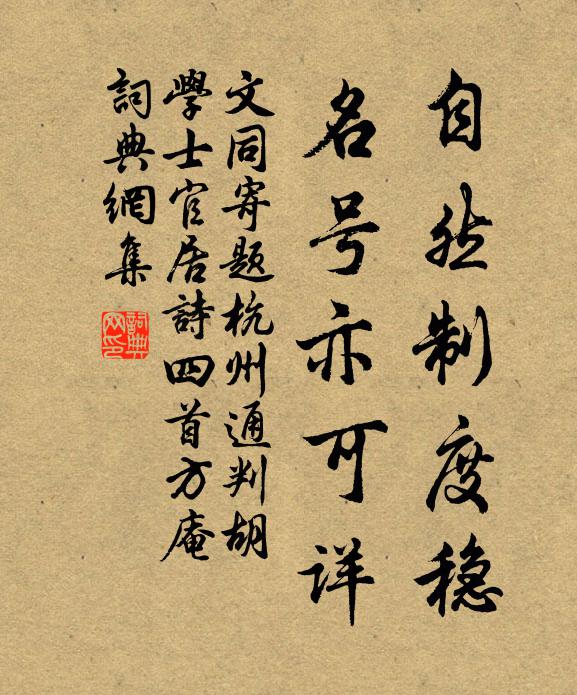 自然制度稳
名号亦可详
文同寄题杭州通判胡
學士官居詩四首方庵
詞典網集
詞典
网印